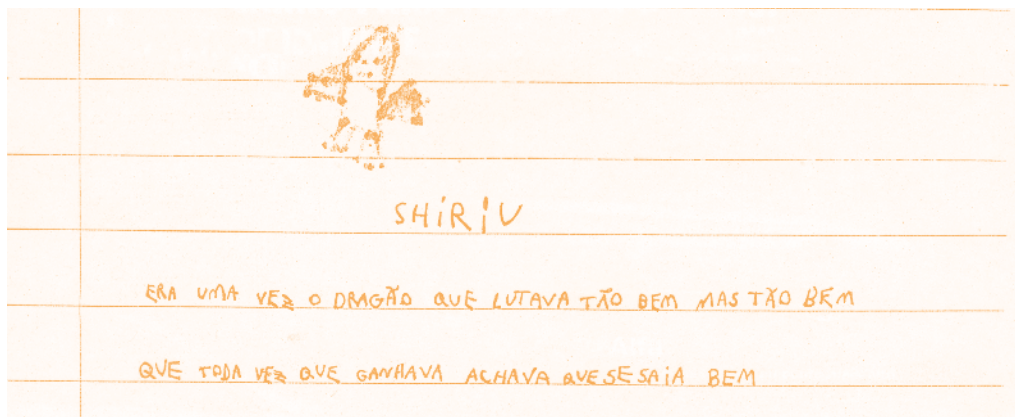 SHIRIU
ERA UMA VEZ O DRAGÃO QUE LUTAVA TÃO BEM MAS TÃO BEM
QUE TODA VEZ QUE GANHAVA ACHAVA QUESESAIA BEM